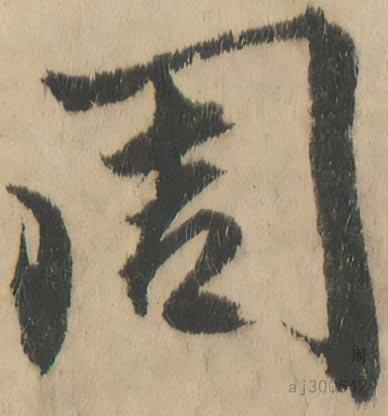 周
周
aj300542